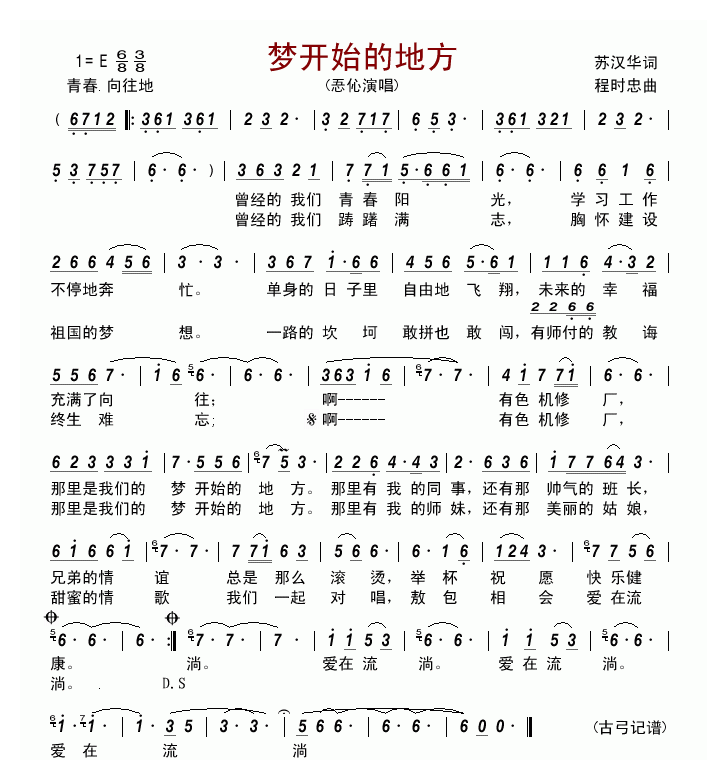 梦开始的地方
1= E 6/8 3/8
苏汉华词
青春.向往地
(忢伈演唱)
程时忠曲
( 6712 ‖: 361 361 | 2 3 2· | 3 2 717 | 6 5 3· | 361 321 | 2 3 2· |
5 3 757 | 6· 6· ) | 3 6 3 2 1 | 7 7 1 5·6 6 1 | 6· 6· | 6 6 1 6 |
曾经的 我们 青 春 阳 光， 学 习 工 作
曾经的 我们 踌 躇 满 志， 胸 怀 建 设
2 6 6 4 5 6 | 3· 3· | 3 6 7 1·6 6 | 4 5 6 5·6 1 | 1 1 6 4·3 2 |
不停地奔 忙。 单身的 日 子里 自由地 飞 翔， 未来的 幸 福
2 2 6 6
祖国的梦 想。 一路的 坎 坷 敢拼也 敢 闯，有师付的 教 诲
5 5 6 7· | 1 6 5 6· | 6· 6· | 363 1 6 | 6 7· 7· | 4 1 7 7 1 | 6· 6· |
充满了向 往； 啊------ 有色 机修 厂，
终生 难 忘； 𝄋 啊------ 有色 机修 厂，
6 2 3 3 3 1 | 7· 5 5 6 | 6 7 5 3· | 2 2 6 4·4 3 | 2· 6 3 6 | 1 7 7 6 4 3· |
那里是我们的 梦 开始的 地 方。 那里有 我 的同 事，还有那 帅气的 班 长，
那里是我们的 梦 开始的 地 方。 那里有 我 的师 妹，还有那 美丽的 姑 娘，
6 1 6 6 1 | 6 7· 7· | 7 7 1 6 3 | 5 6 6· | 6· 1 6 | 1 2 4 3· | 6 7 7 5 6 |
兄弟的情 谊 总是 那么 滚 烫， 举 杯 祝 愿 快 乐健
甜蜜的情 歌 我们 一起 对 唱， 敖 包 相 会 爱 在流
5 6· 6· | 6· :‖ 6 7· 7· | 7· | 1 1 5 3 | 5 6· 6· | 1 1 5 3 | 5 6· 6· |
康。 淌。 爱在 流 淌。 爱 在 流 淌。
淌。 . D.S
6 1· 7 1· | 1· 3 5 | 3· 3· | 5 6 6 6· | 6· 6· | 6 0 0· ‖ (古弓记谱)
爱 在 流 淌